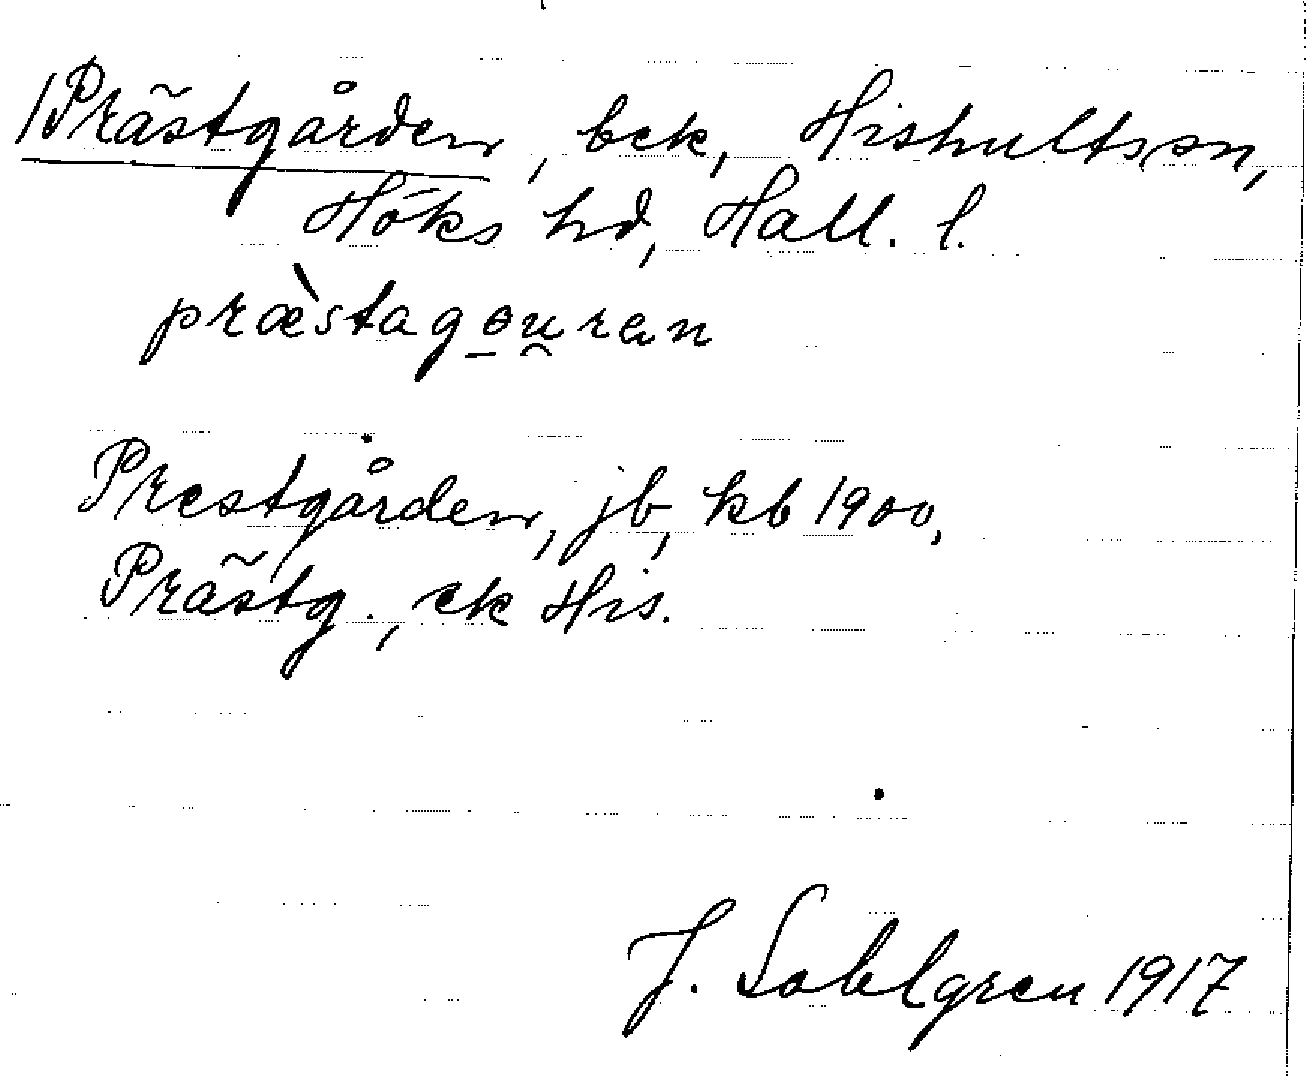 /Prästgården, bek, Hishultssn,
Höks hd, Hall. l.
præ̀stagɵu̯ran
Prestgården, jb, kb 1900,
Prästg., ek His.
J. Sahlgren 1917